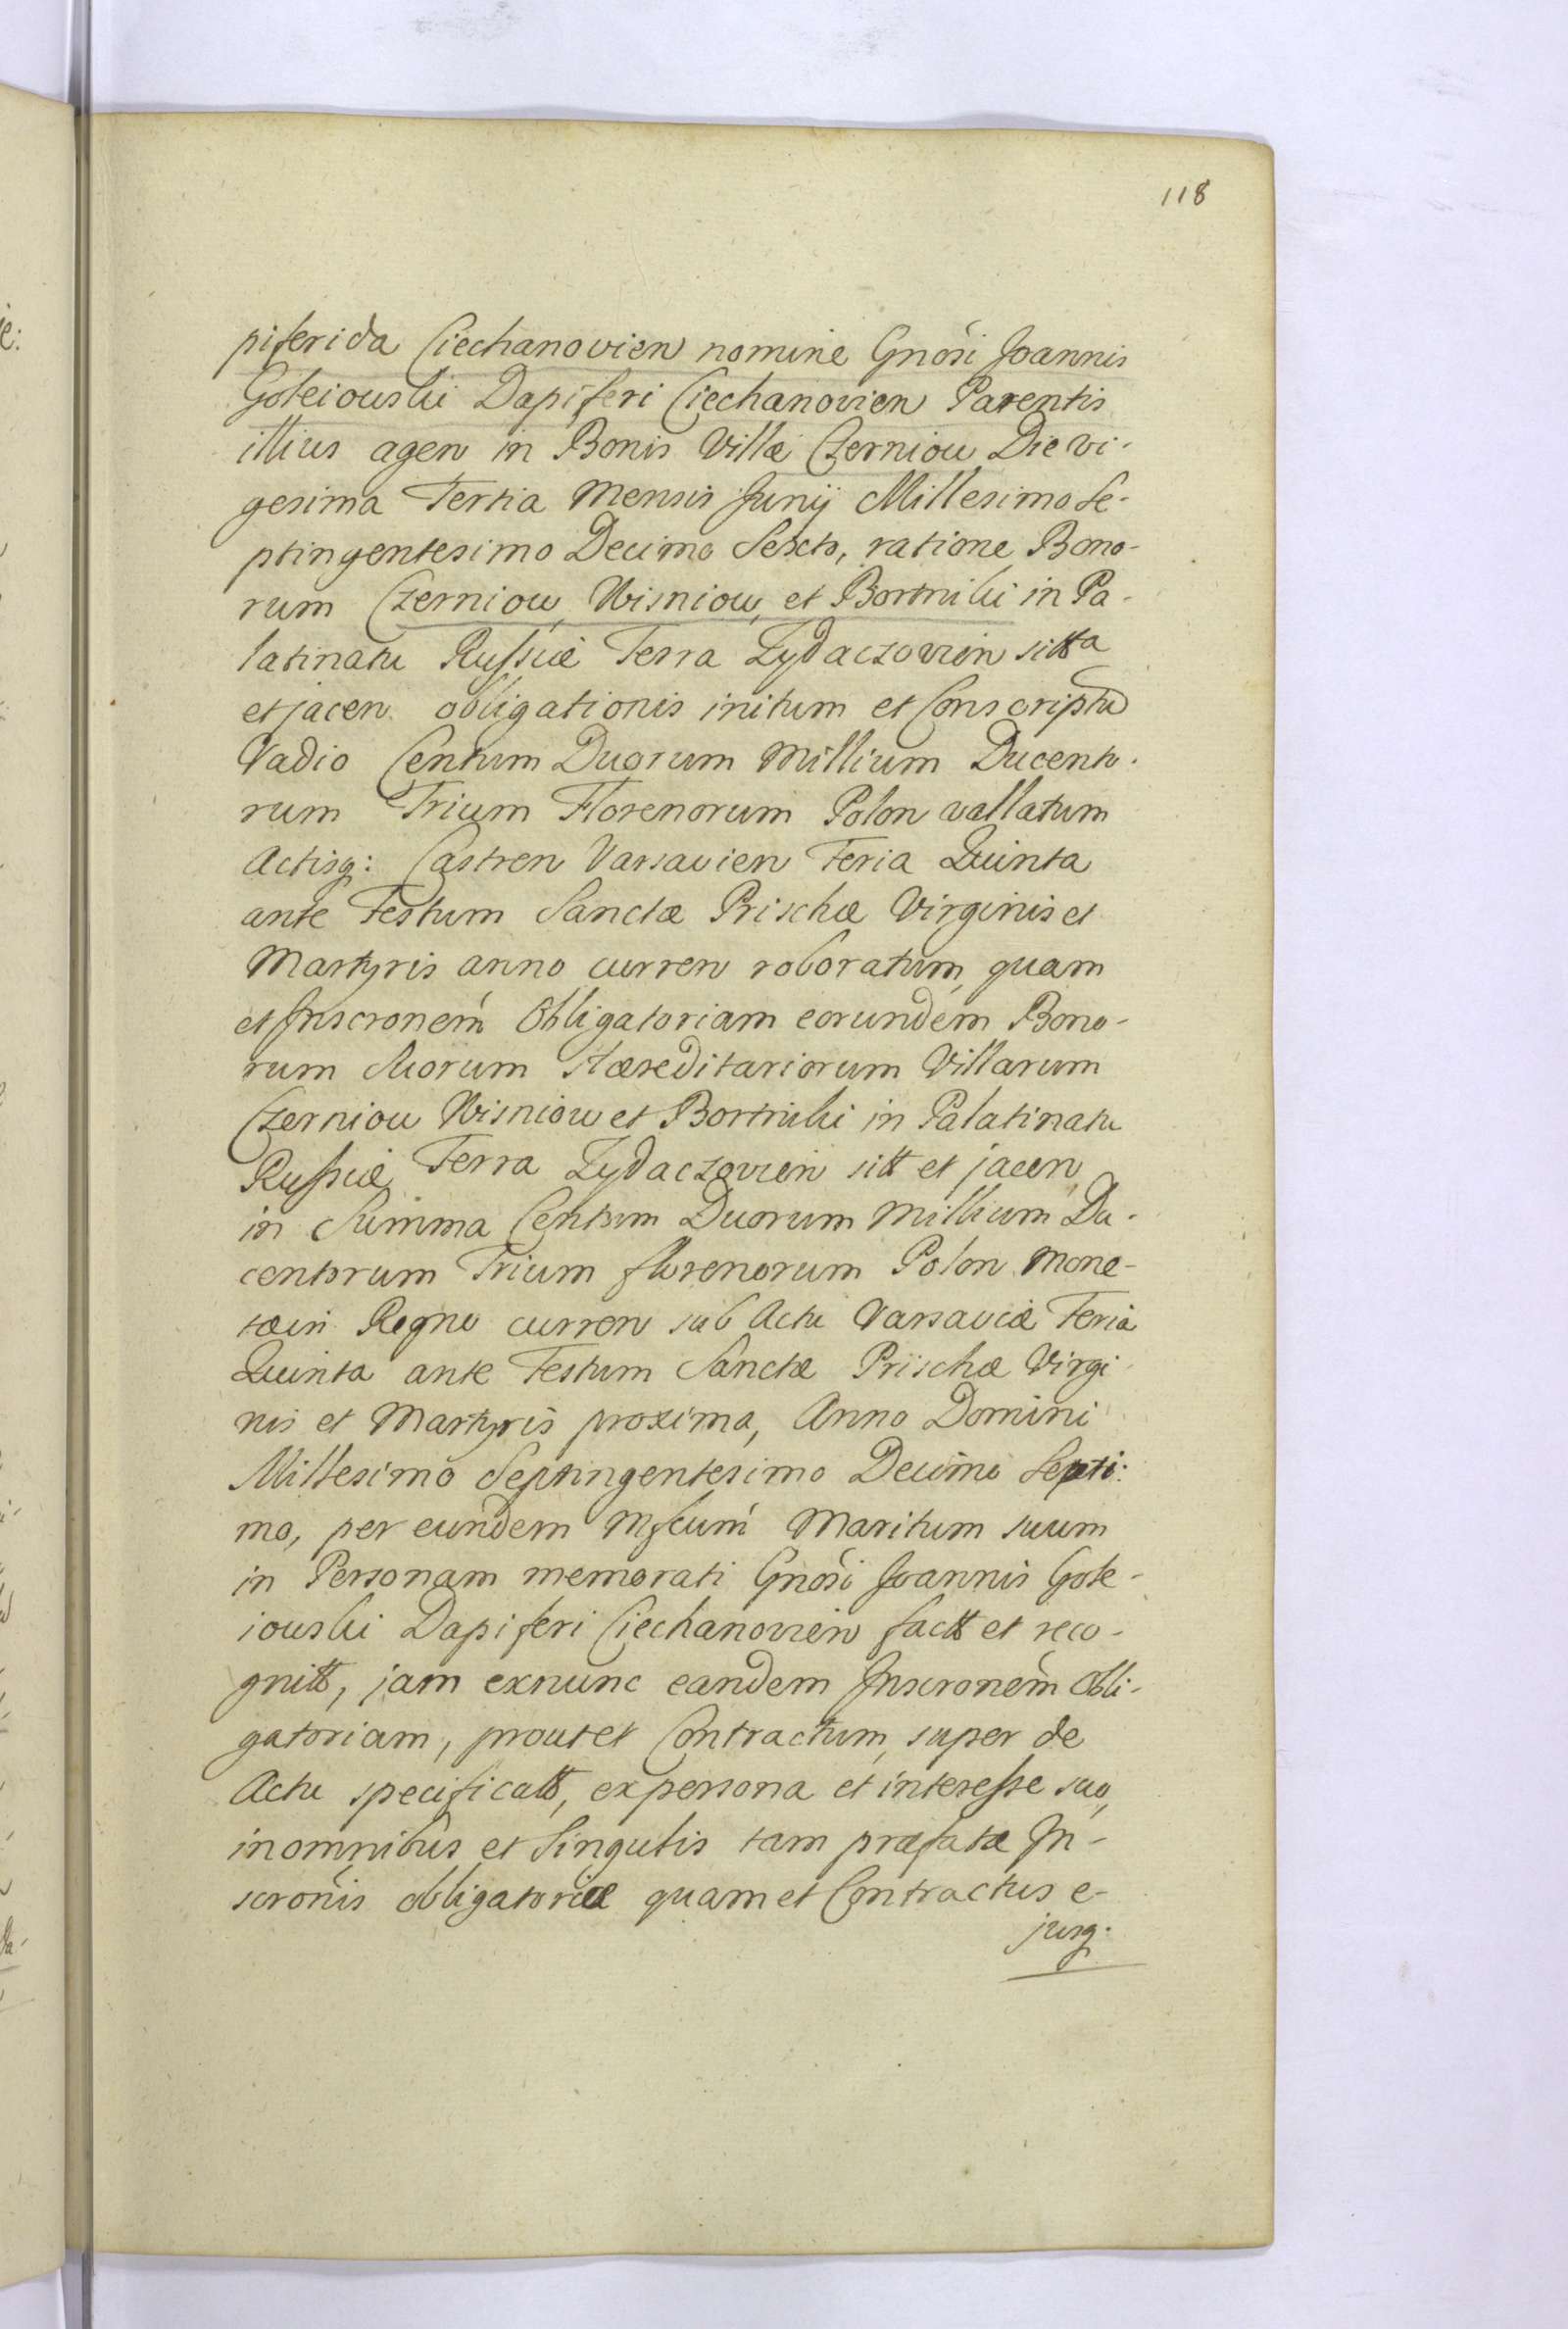 118
piferida Ciechanovien nomine Gnosi Joannis
Goteiouski Dapiferi Ciechanovien Parentis
illius agen in Bonis Villæ Czerniow Die vi-
gesima Tertia Mensis Junij Millesimo Se-
ptingentesimo Decimo Sexto, ratione Bono-
rum Czerniow, Wisniow, et Bortniki in Pa-
latinatu Russiæ Terra Zydaczovien sitta
et jacen obligationis initum et Conscriptu
Vadio Centum Duorum Millium Ducento-
rum Trium Florenorum Polon vallatum
Actisq: Castren Varsavien Feria Quinta
ante Festum Sanctæ Prischæ Virginis et
Martyris anno curren roboratum, quam
et Inscronem Obligatoriam eorundem Bono-
rum Suorum Hæreditariorum Villarum
Czerniow Wisniow et Bortniki in Palatinatu
Russiæ, Terra Zydaczovien sitt et jacen,
in Summa Centum Duorum Millium Du-
centorum Trium florenorum Polon Mone-
tæ in Regno curren sub Actu Varsaviæ Feria
Quinta ante Festum Sanctæ Prischæ Virgi-
nis et Martyris proxima, Anno Domini
Millesimo Septingentesimo Decimo Septi-
mo, per eundem Mfcum Maritum suum
in Personam memorati Gnosi Joannis Gote-
iouski Dapiferi Ciechanovien factt et reco-
gnitt, jam exnunc eandem Inscronem Obli-
gatoriam, prout et Contractum, super de
Actu specificatt, ex persona et interesse suo,
in omnibus et Singulis tam præfatæ In-
scronis obligatoriæ quam et Contractus e-
jusq.